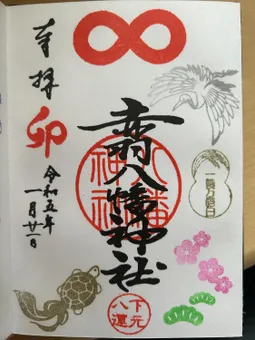 一粒万倍日
赤羽八幡神社
八幡
神社
下元
八運
奉拝
卯
令和五年
一月廿一日